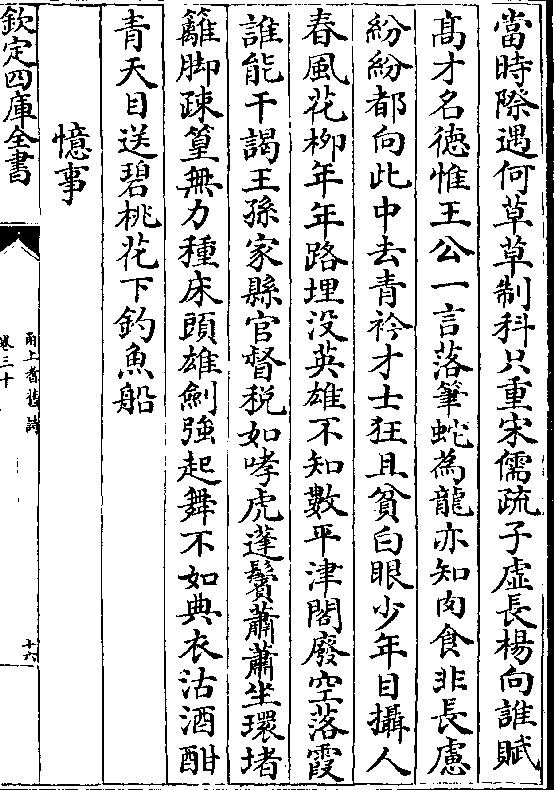 當時際遇何草草制科只重宋儒疏子虛長楊向誰賦
髙才名徳惟王公一言落筆蛇為龍亦知肉食非長慮
紛紛都向此中去青衿才士狂且貧白眼少年目攝人
春風花柳年年路埋没英雄不知數平津閣廢空落霞
誰能干謁王孫家縣官督税如哮虎蓬鬢蕭蕭坐環堵
籬脚疎篁無力種床頭雄劍強起舞不如典衣沽酒酣
青天目送碧桃花下釣魚船
憶事
欽定四庫全書
甬上耆舊詩
卷三十
十六